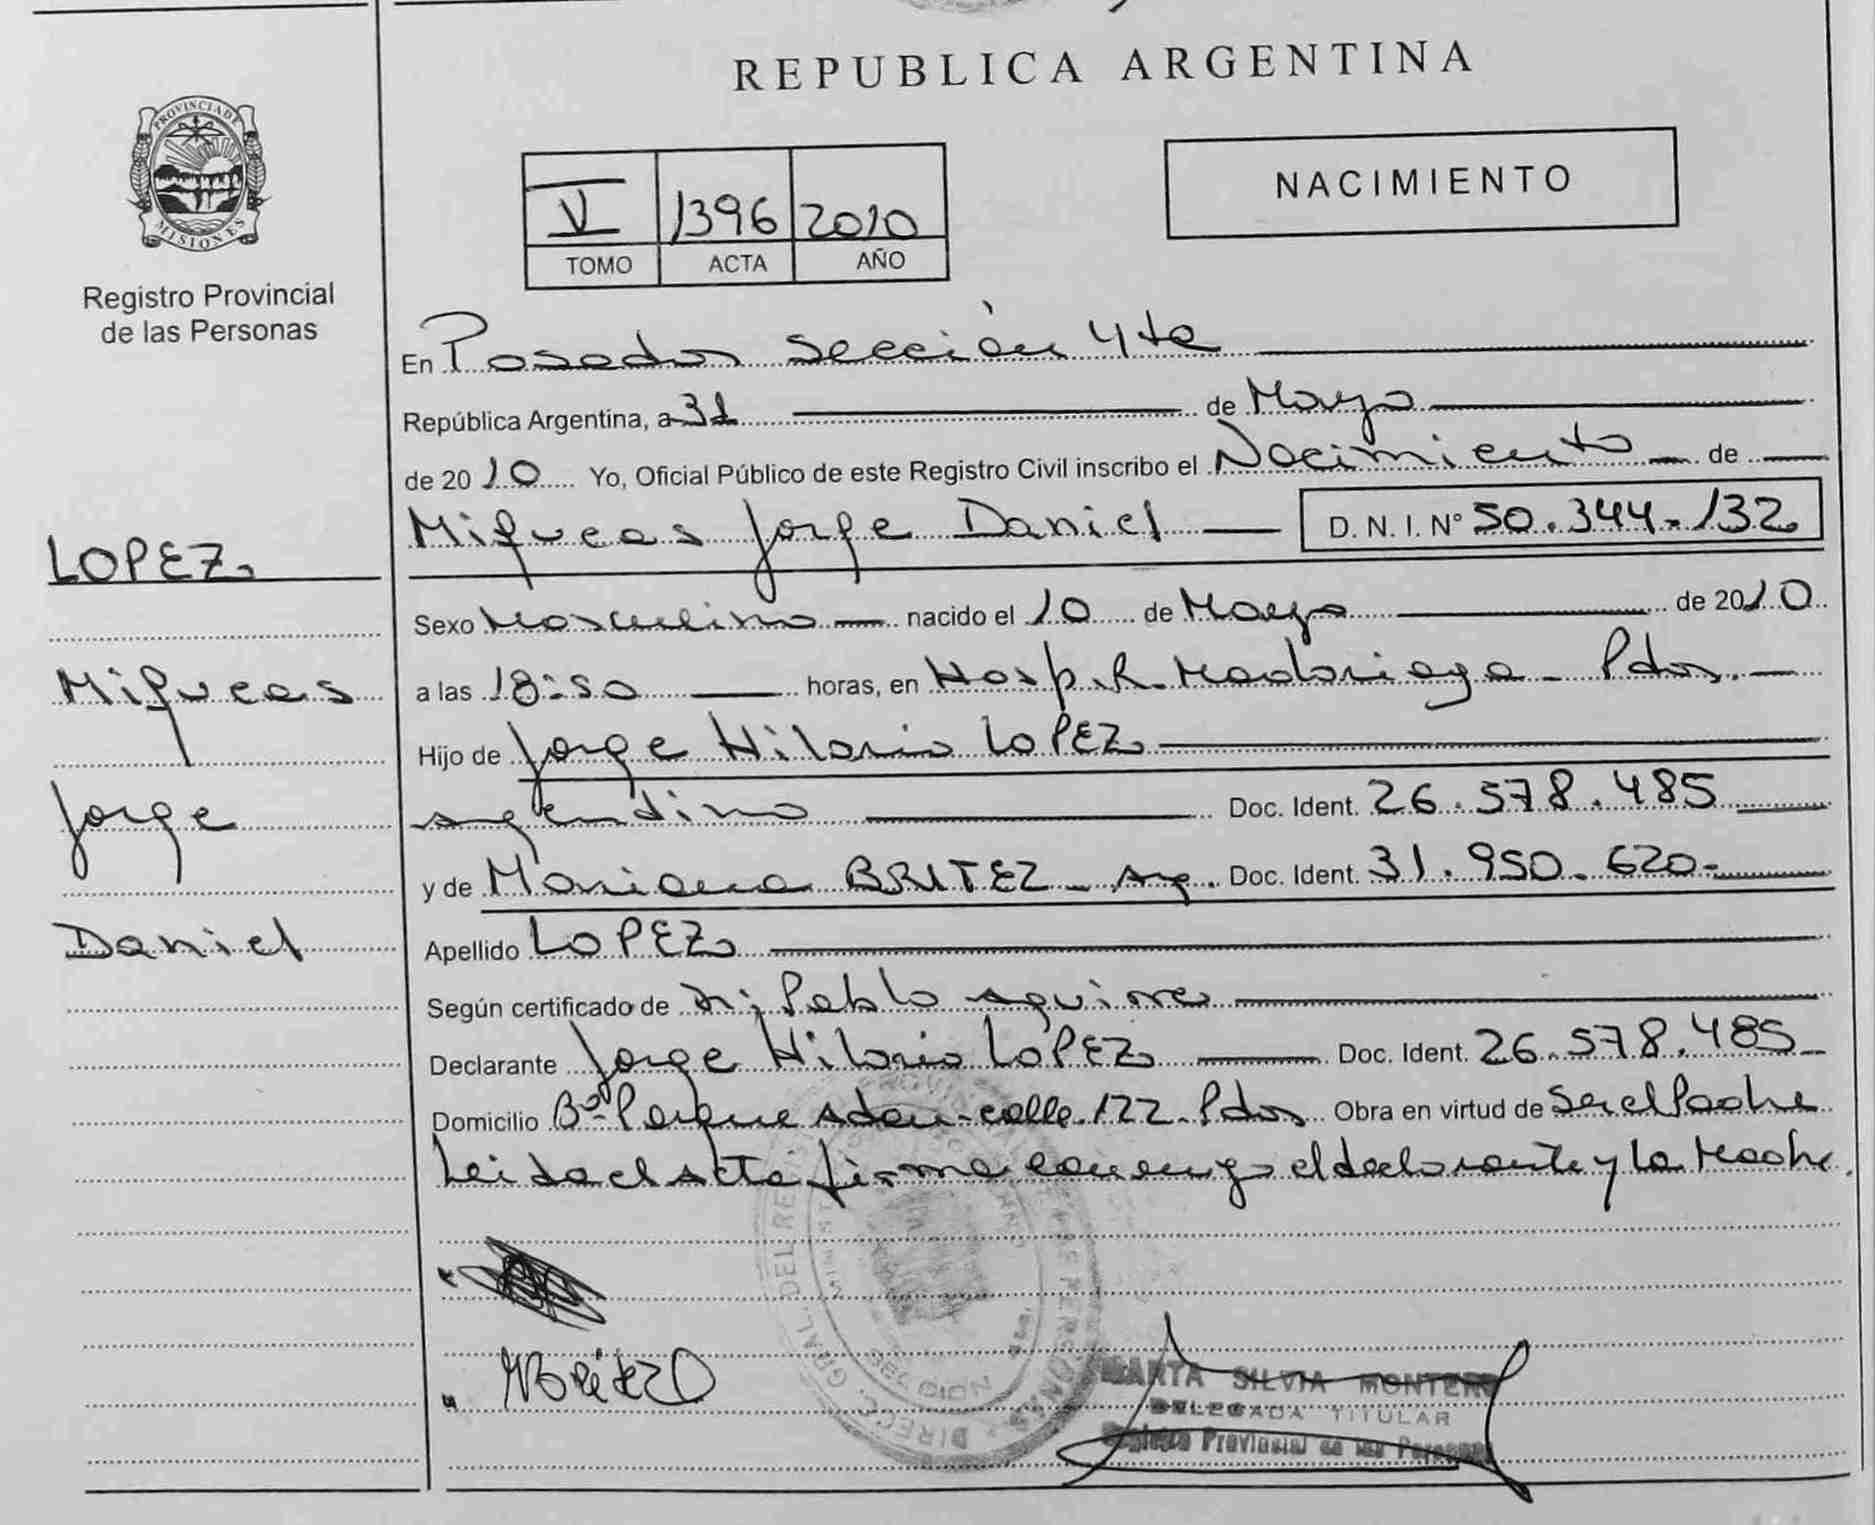 REPUBLICA ARGENTINA
PROVINCIA DE
MISIONES
Registro Provincial
de las Personas
NACIMIENTO
V 1396 2010
TOMO ACTA AÑO
En Posadas Sección 4ta
República Argentina, a 31 de Mayo
de 2010 Yo, Oficial Público de este Registro Civil inscribo el Nacimiento de
Miqueas Jorge Daniel D. N. I. N° 50.344.132
LOPEZ
Sexo Masculino nacido el 10 de Mayo de 2010
Miqueas
a las 18:50 horas, en Hosp. R. Madariaga - Pdas.
Hijo de Jorge Hilario LOPEZ
Jorge
argentino Doc. Ident. 26.578.485
y de Mariana BRITEZ - Arg. Doc. Ident. 31.950.620-
Daniel
Apellido LOPEZ
Según certificado de Pablo Aguirre
Declarante Jorge Hilario LOPEZ Doc. Ident. 26.578.485
Domicilio B° Parque Adam - calle 122 - Pdas Obra en virtud de Ser el Padre
Leida el Acta firma conmigo el declarante y la Madre.
MARTA SILVIA MONTERO
DELEGADA TITULAR
Registro Provincial de las Personas